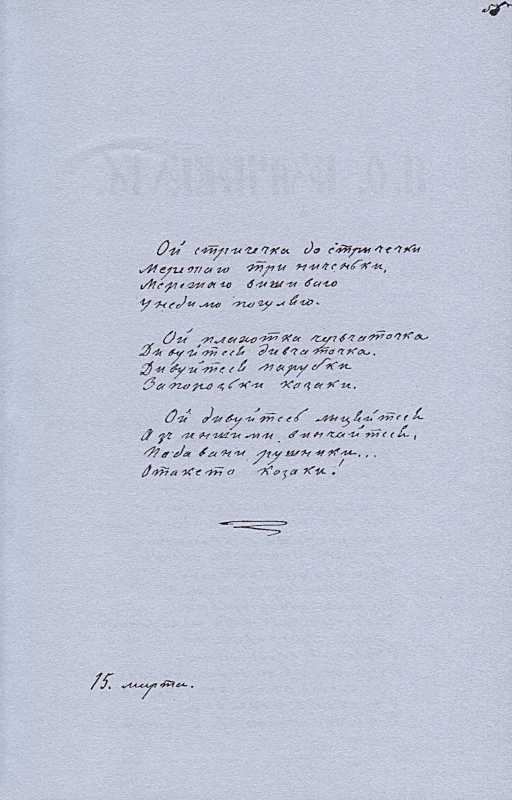 Ой стричечка до стричечки
Мережаю три ниченьки,
Мережаю вишиваю
У недилю погуляю.
Ой плахотка червчаточка
Дивуйтеся дивчаточка.
Дивуйтеся парубки
Запорозьки козаки.
Ой дивуйтесь лицяйтеся
А зъ иншими винчайтеся,
Подавани рушники...
Отакето козаки!
15. марта.